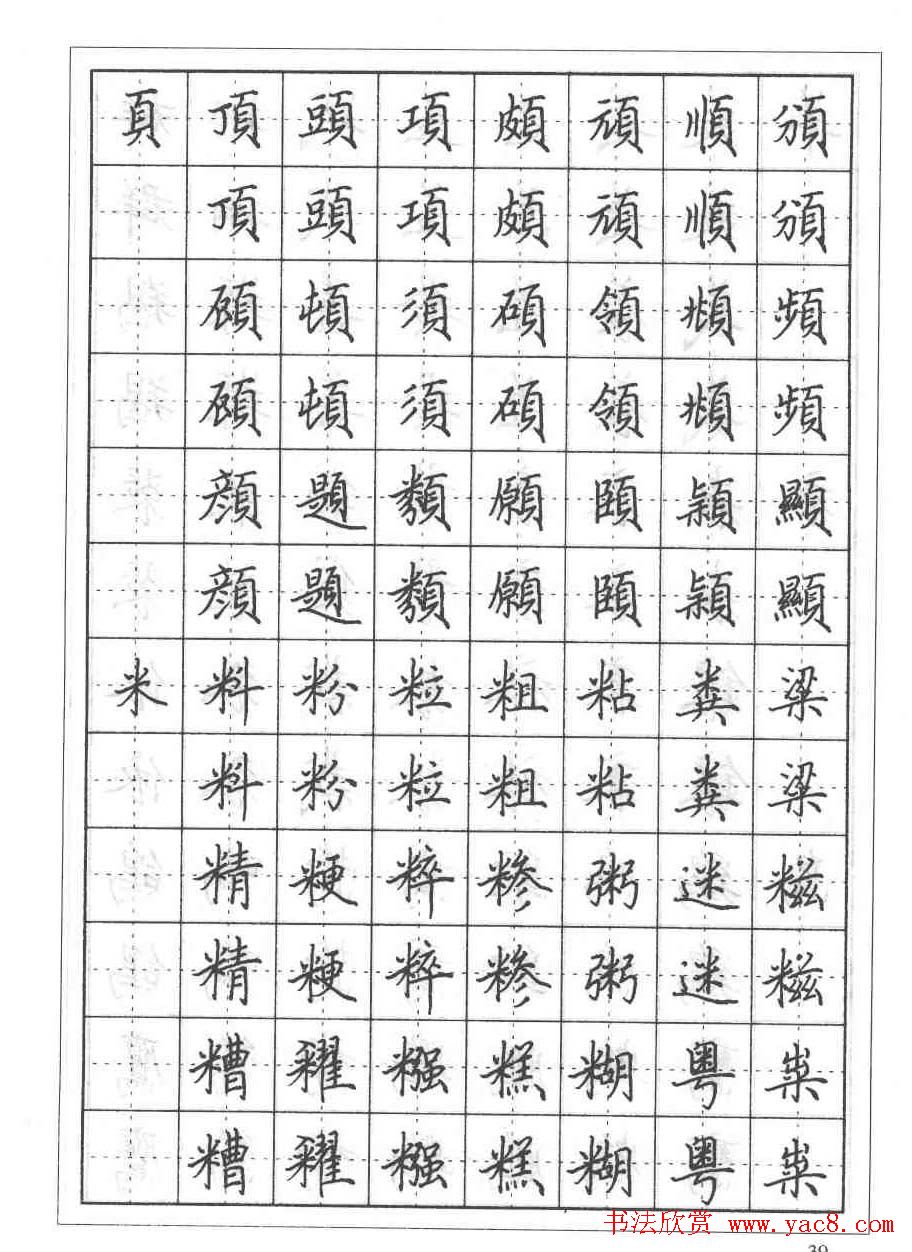 頁頂頭項頗頑順頒
頂頭項頗頑順頒
頓須碩領頫頻
頓須碩領頫頻
顔題類願頤穎顯
顔題類願頤穎顯
米料粉粒粗粘糞粱
料粉粒粗粘糞粱
精粳粹糝粥迷糍
精粳粹糝粥迷糍
糟糨糕糊粤
糟糨糕糊粤
书法欣赏 www.yac8.com
39